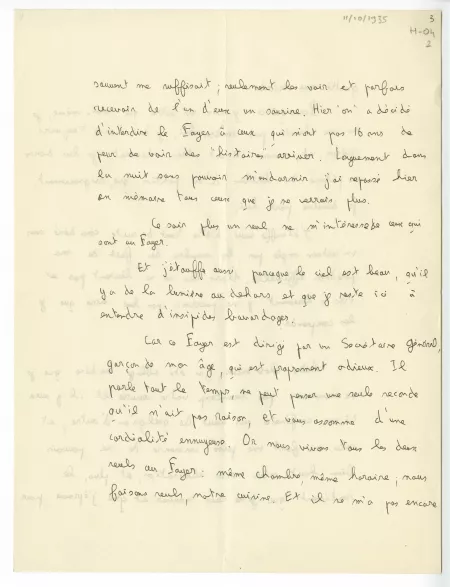 11/10/1935
3
H-04
2
souvent me suffisait ; seulement les voir et parfois
recevoir de l'un d'eux un sourire. Hier "on" a décidé
d'interdire le Foyer à ceux qui n'ont pas 16 ans de
peur de voir des "histoires" arriver. Longuement dans
la nuit sans pouvoir m'endormir j'ai repassé hier
en mémoire tous ceux que je ne verrais plus.
Ce soir plus un seul ne m'intéresse de ceux qui
sont au Foyer.
Et j'étouffe aussi parceque le ciel est beau, qu'il
y a de la lumière au dehors, et que je reste ici à
entendre d'insipides bavardages.
Car ce Foyer est dirigé par un Secrétaire général,
garçon de mon âge, qui est proprement odieux. Il
parle tout le temps, ne peut penser une seule seconde
qu'il n'ait pas raison, et vous assomme d'une
cordialité ennuyeuse. Or nous vivons tous les deux
seuls au Foyer : même chambre, même horaire, nous
faisons seuls, notre cuisine. Et il ne m'a pas encore